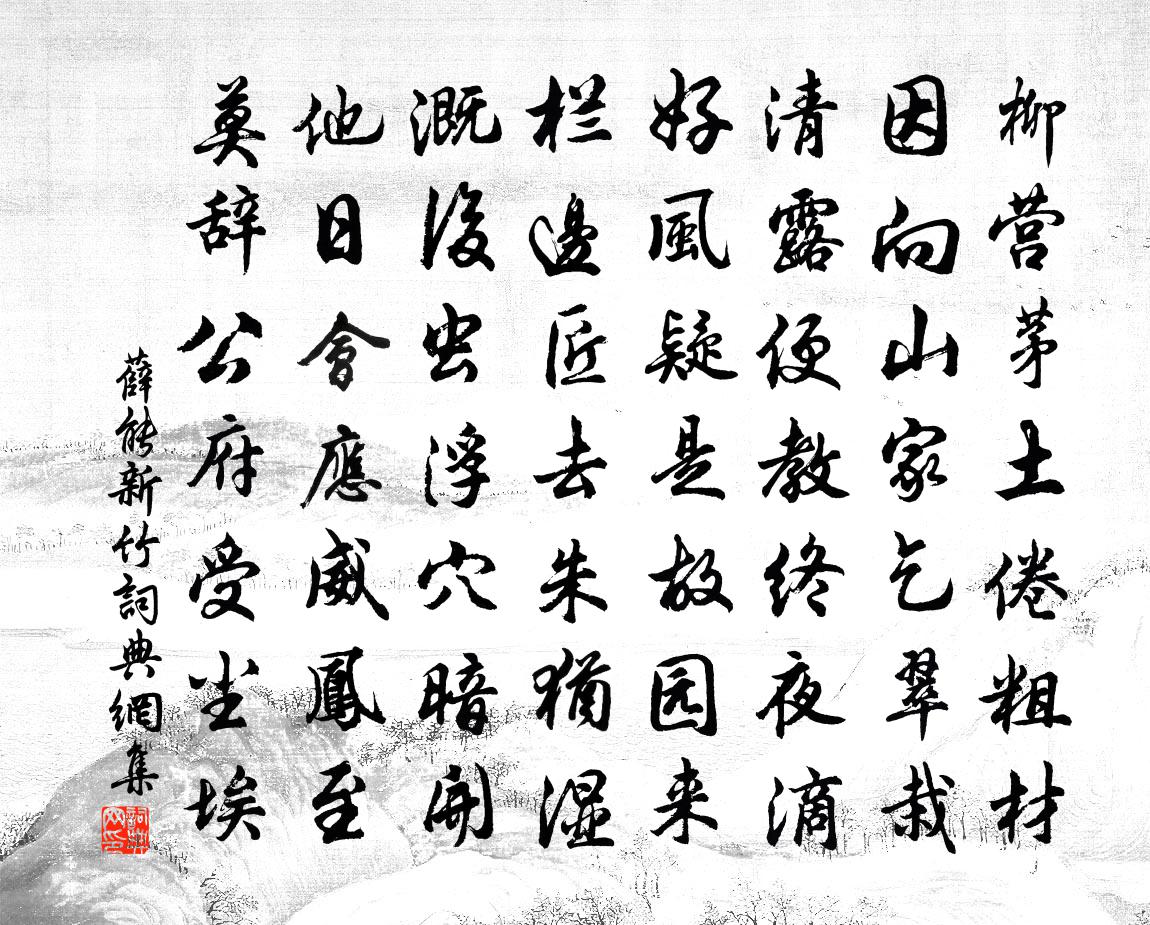 柳营茅土倦粗材
因向山家乞翠栽
清露便教终夜滴
好風疑是故园来
栏邊匠去朱犹湿
溉後虫浮穴暗開
他日會應威鳳至
莫辞公府受尘埃
薛能新竹詞典網集